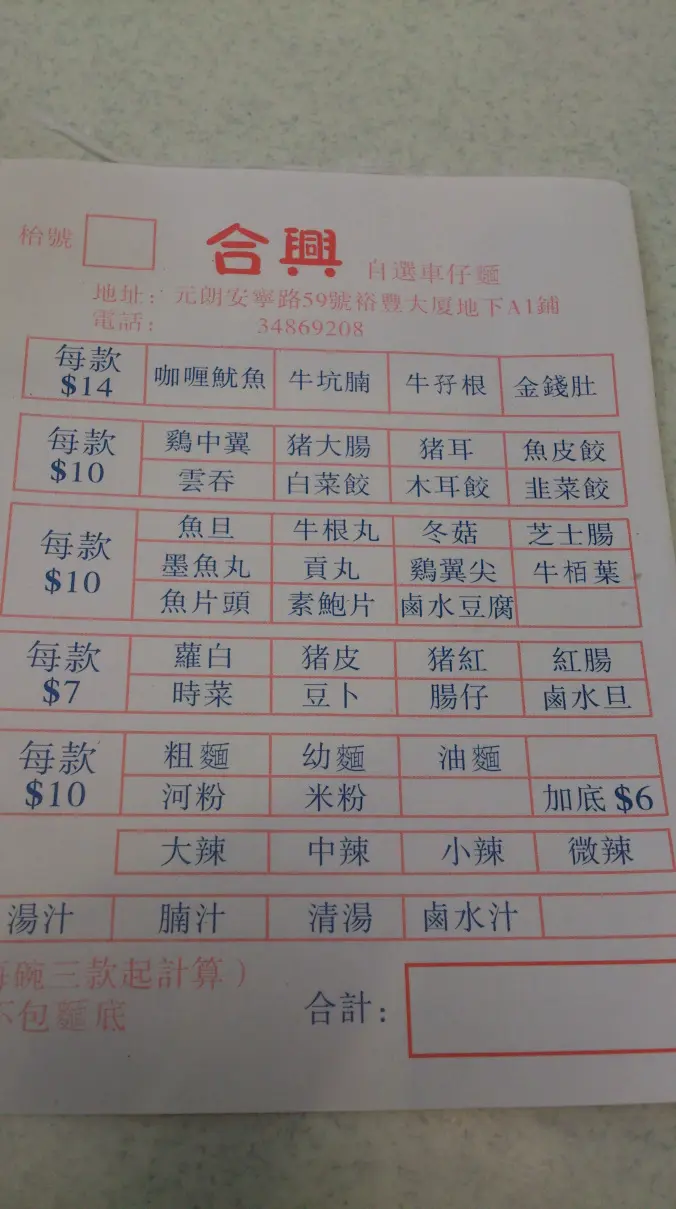 枱號
合興 自選車仔麵
地址：元朗安寧路59號裕豐大厦地下A1鋪
電話： 34869208
每款 $14 咖喱魷魚 牛坑腩 牛孖根 金錢肚
每款 $10 鷄中翼 猪大腸 猪耳 魚皮餃
雲吞 白菜餃 木耳餃 韭菜餃
每款 $10 魚旦 牛根丸 冬菇 芝士腸
墨魚丸 貢丸 鷄翼尖 牛栢葉
魚片頭 素鮑片 鹵水豆腐
每款 $7 蘿白 猪皮 猪紅 紅腸
時菜 豆卜 腸仔 鹵水旦
每款 $10 粗麵 幼麵 油麵
河粉 米粉 加底 $6
大辣 中辣 小辣 微辣
湯汁 腩汁 清湯 鹵水汁
每碗三款起計算）
不包麵底
合計：